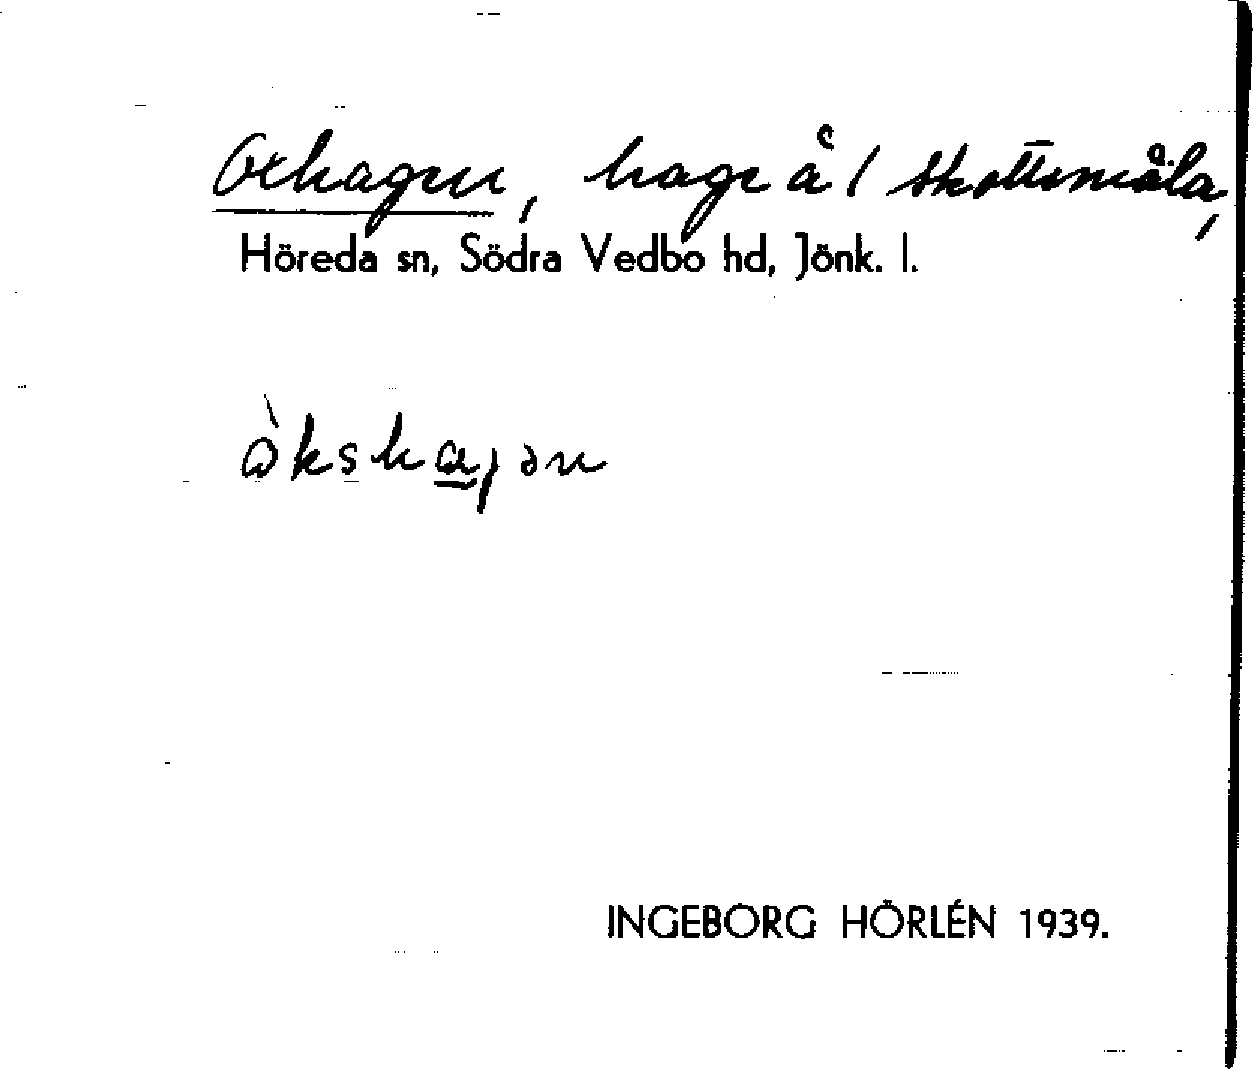 Oxhagen, hage å / Skottsmåla,
Höreda sn, Södra Vedbo hd, Jönk. l.
ὰkshaꞬən
INGEBORG HÖRLÉN 1939.